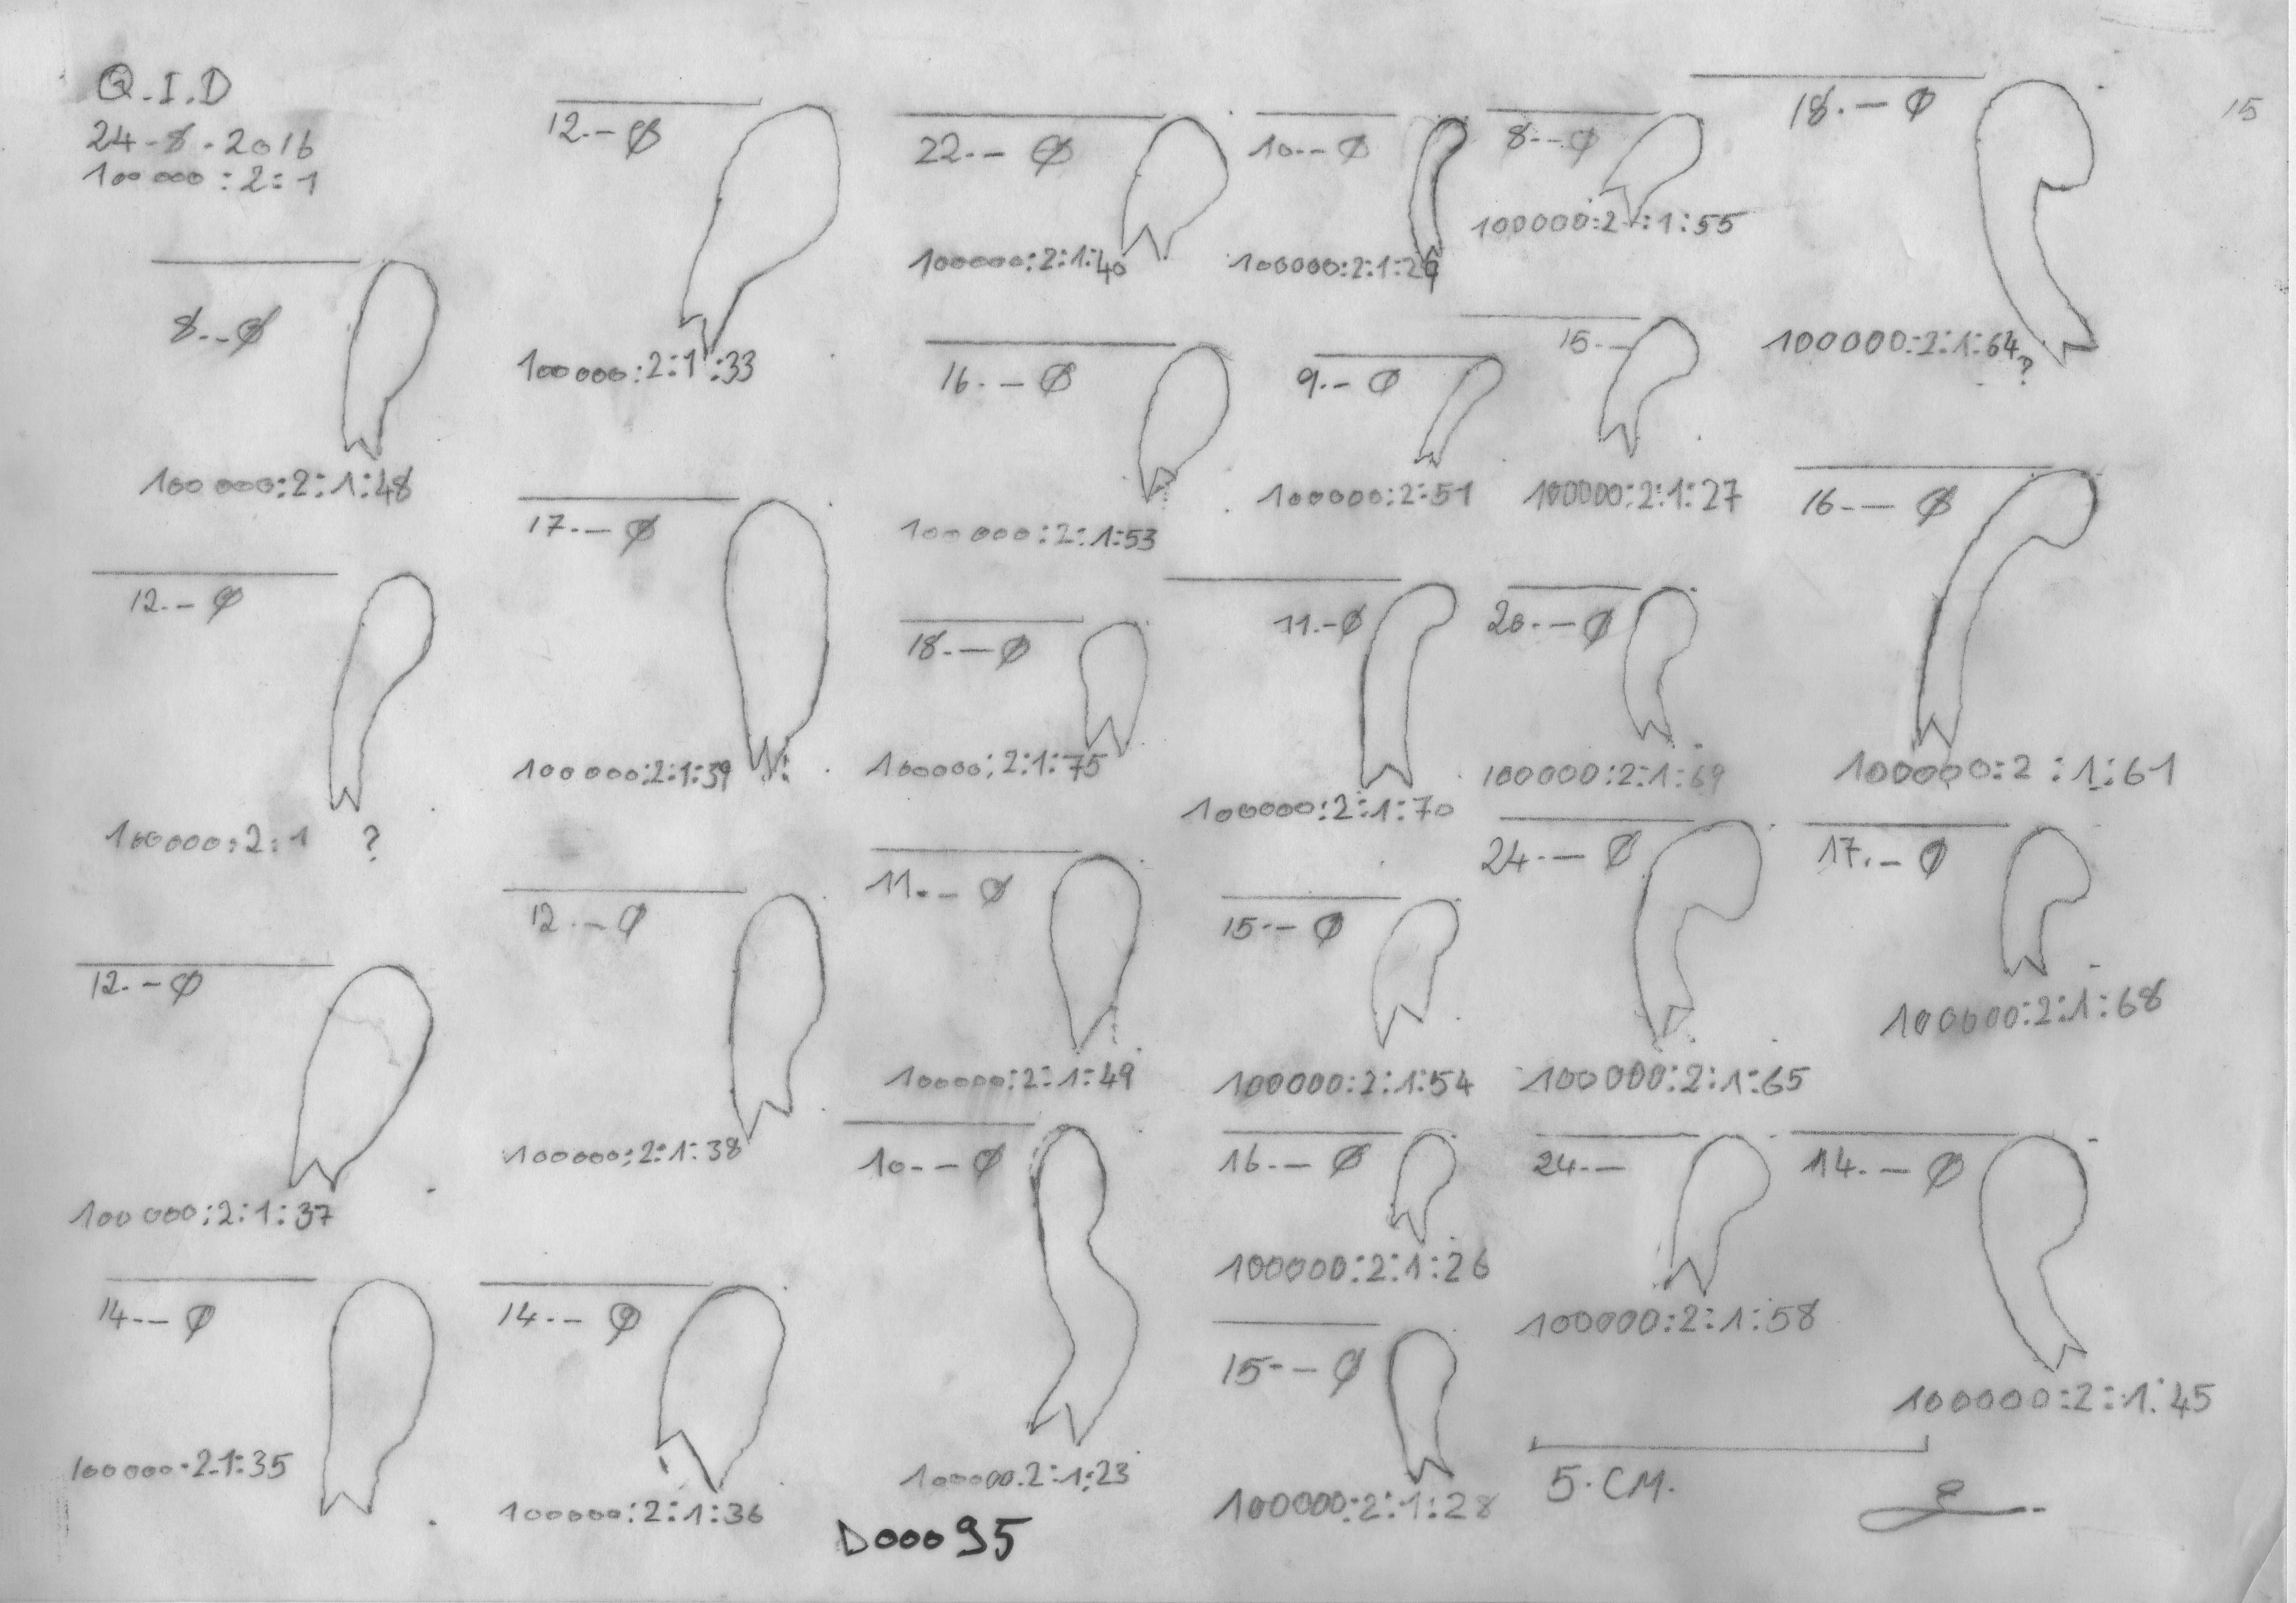 Q.I.D
24-8-2016
100000:2:1
15
8.-Ø
100000:2:1:48
12.-Ø
100000:2:1 ?
12.-Ø
100000:2:1:37
14.-Ø
100000.2-1:35
12.-Ø
100000:2:1:33
17.-Ø
100000:2:1:39
12.-Ø
100000:2:1:38
14.-Ø
100000:2:1:36
22.-Ø
100000:2:1:40
16.-Ø
100000:2:1:53
18.-Ø
100000:2:1:75
11.-Ø
100000:2:1:49
10.-Ø
100000.2:1:23
D00095
10.-Ø
9.-Ø
100000:2:51
11.-Ø
100000:2:1:70
15.-Ø
100000:2:1:54
16.-Ø
100000:2:1:26
15.-Ø
100000:2:1:28
8.-Ø
100000:2:1:55
15.-
100000:2:1:27
20.-Ø
100000:2:1:69
24.-Ø
100000:2:1:65
24.-
100000:2:1:58
18.-Ø
100000:2:1:64?
16.-Ø
100000:2:1:61
17.-Ø
100000:2:1:68
14.-Ø
100000:2:1:45
5.CM.